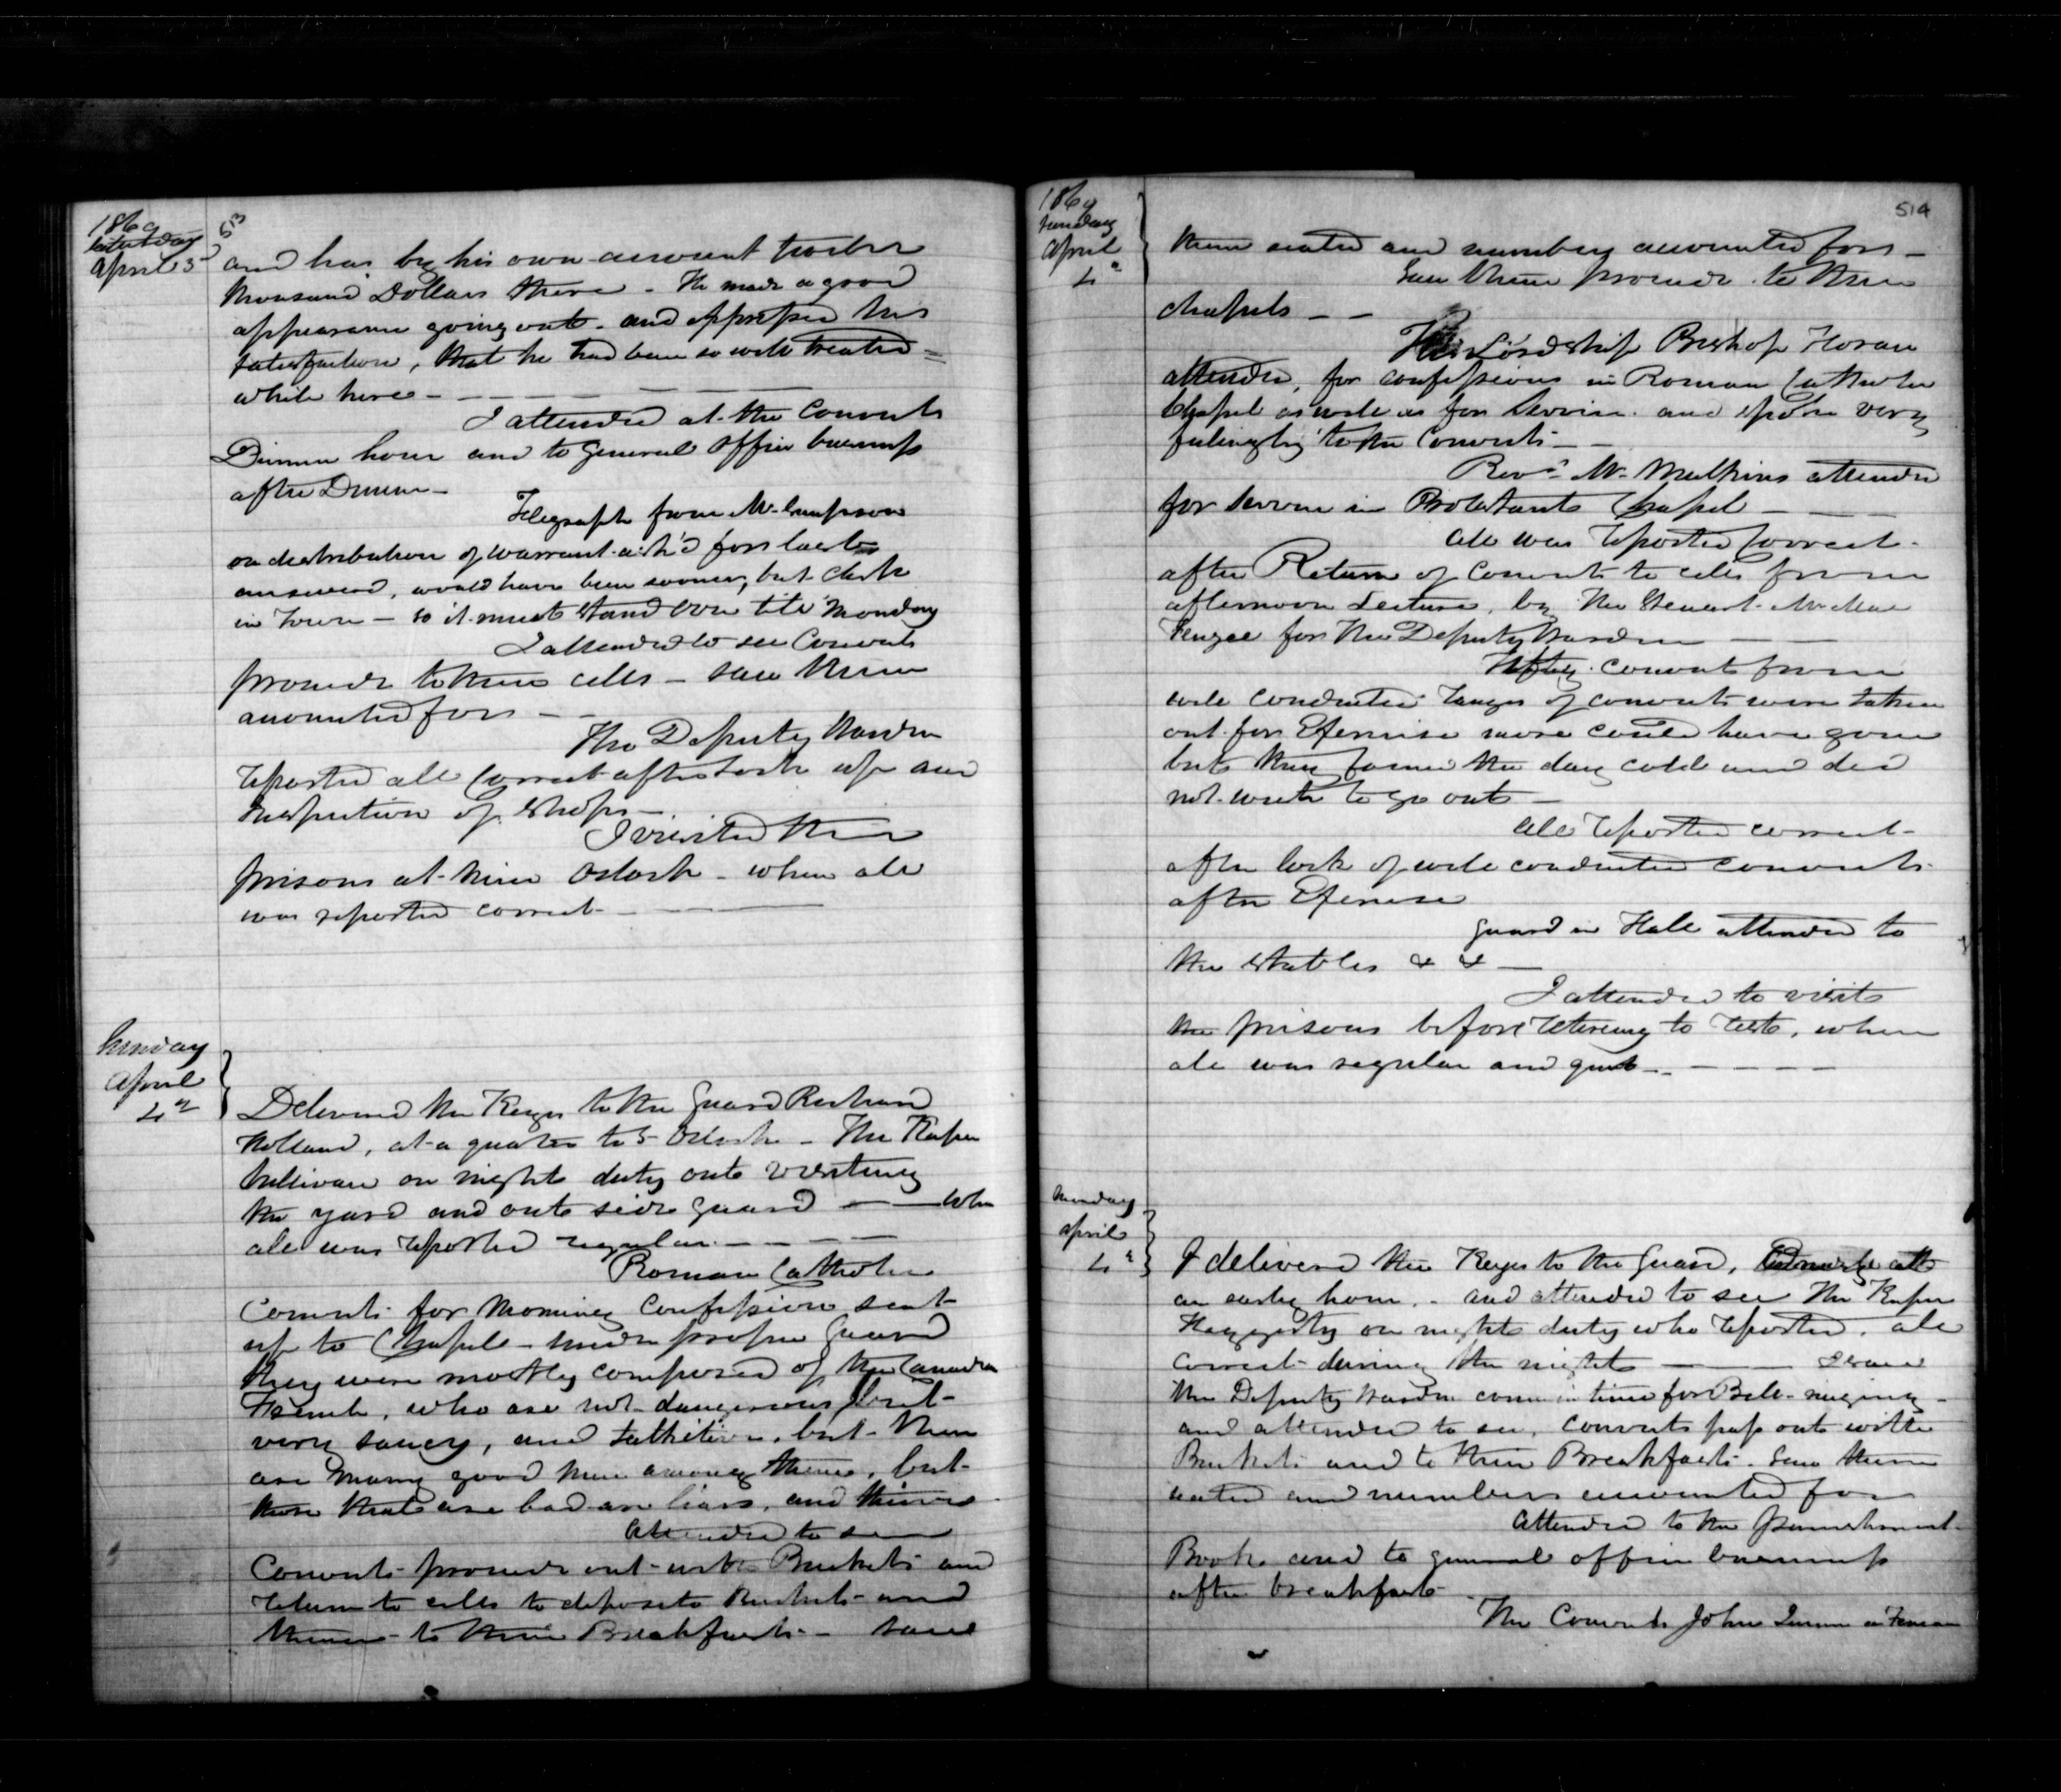 1869
Saturday
April 3
and has by his own account twelve
thousand Dollars there - He made a good
appearance going out - and expressed his
satisfaction, that he had been so well treated =
while here -
I attended at the Convicts
Dinner hour and to General Office business
after Dinner -
Telegraph from Mr
on distribution of warrant ask'd for last
answered, would have been sooner, but clerk
in Town - so it must stand over till Monday
I attended to see Convicts
proceed to their cells - saw them
accounted for -
The Deputy Warden
reported all correct after lock up and
Inspection of Shops -
I visited the
prisons at nine Oclock - when all
was reported correct -
Sunday
April
4th
Delivered the Keys to the Guard Richard
Holland, at a quarter to 5 Oclock - The Keeper
Sullivan on night duty out visiting
the yard and out side guard - when
all was reported regular -
Roman Catholic
Convicts for Morning Confession sent
up to Chapel - under proper Guard
they were mostly composed of the Canadian
French, who are not dangerous but
very saucy, and talkitive, but there
are many good men among them, but
those that are bad are liars, and thieves
Attended to see
Convicts proceed out with Buckets and
return to cells to deposite Buckets and
thence to their Breakfasts - saw
1869
Sunday
April
4th
514
them seated and numbers accounted for -
Saw them proceed to their
chapels - -
His Lordship Bishop Horan
attended, for confessions in Roman Catholic
Chapel as well as for Service and spoke very
feelingly to the Convicts -
Revd Mr Mulkins attended
for Service in Protestant Chapel -
All was reported correct -
after Return of Convicts to cells from
afternoon Lecture, by the Steward
for the Deputy Warden -
Fifty Convicts from
well conducted ranges of convicts were taken
out for Exercise more could have gone
but they found the day cold and did
not wish to go out -
All reported correct -
after lock of well conducted convicts
after Exercise
Guard in Hall attended to
the stables & & -
I attended to visit
the prisons before retireing to rest, when
all was regular and quiet -
Monday
April
I delivered the Keys to the Guard, at
an early hour, - and attended to see the Keeper
Haggerty on night duty who reported, all
correct during the night -
the Deputy Warden come in time for Bell-ringing -
and attended to see, convicts pass out with
Buckets and to their Breakfasts. Saw them
seated and numbers accounted for
Attended to the punishment
Book and to general office business
after breakfast -
The Convict John